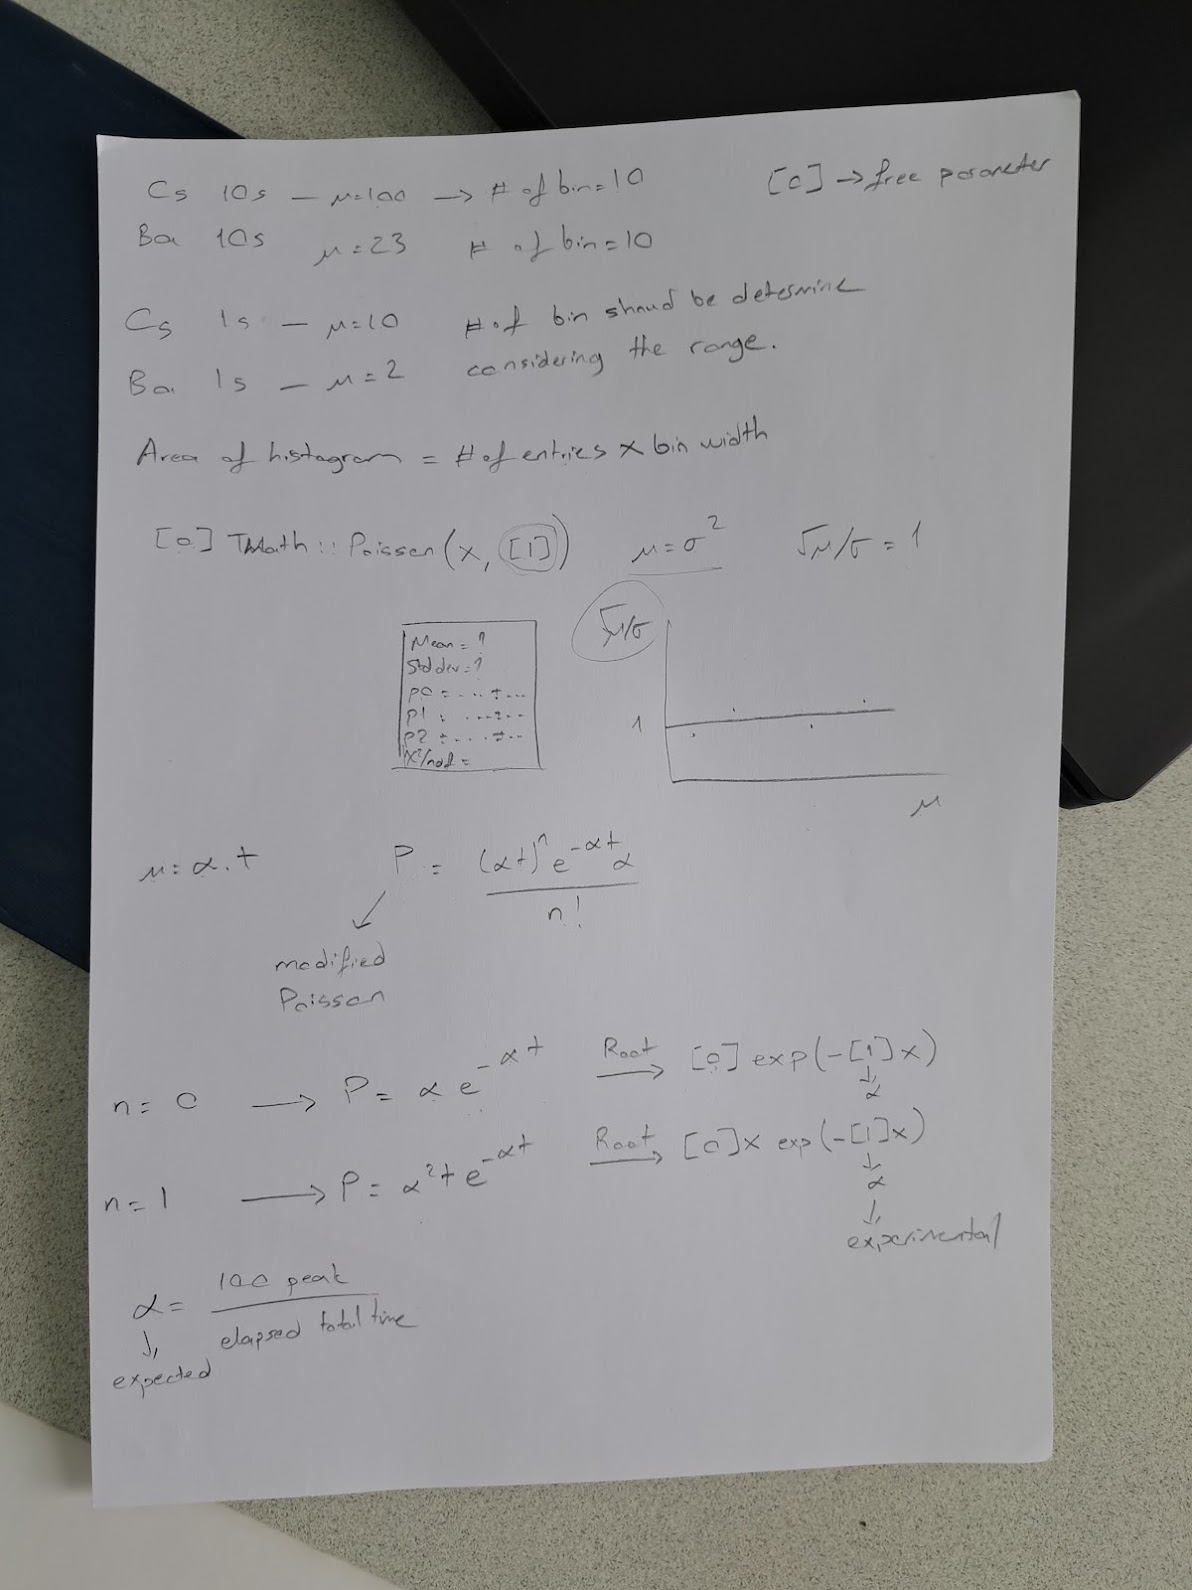 Cs 10s – μ=100 → # of bin=10
[0] → free parameter
Ba 10s μ=23 # of bin=10
Cs 1s – μ=10 # of bin should be determine
Ba 1s – μ=2 considering the range.
Area of histagram = # of entries x bin width
[0] TMath::Poisson(x, [1]) μ=σ² √μ/σ = 1
Mean = ?
Std dev = ?
p0 = ... ± ...
p1 = ... ± ...
p2 = ... ± ...
χ²/ndf =
√μ/σ
1
μ
μ = α.t P = (αt)ⁿ e^-αt α / n!
modified
Poisson
n = 0 → P = α e^-αt Root → [0] exp(-[1]x)
α
n = 1 → P = α² t e^-αt Root → [0]x exp(-[1]x)
α
experimental
α = 100 peak / elapsed total time
expected